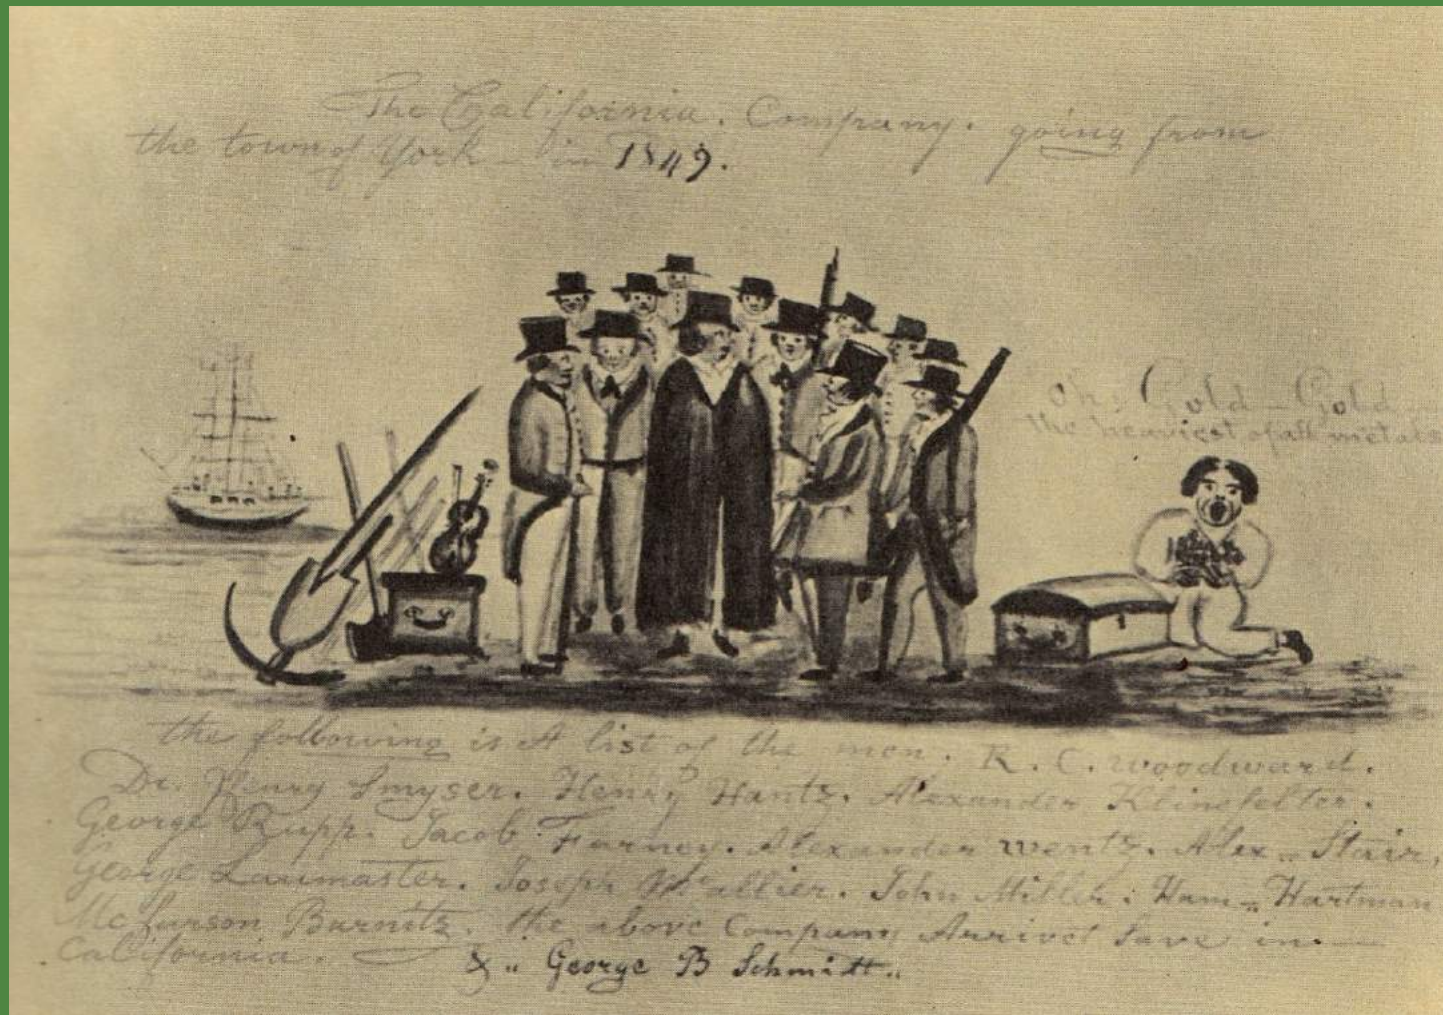 The California. Company. going from
the town of York - in 1849.
Oh: Gold - Gold -
the heaviest of all metals
the following is A list of the men. R. C. woodward.
Dr. Henry Smyser. Henry Hantz. Alexander Klinefelter.
George Rupp. Jacob Farney. Alexander wentz. Alex „ Stair,
George Laumaster. Joseph John Miller. Ham „ Hartman
McFurson Barnitz. the above Company Arrived Save in. —
California. & „ George B Schmitt „